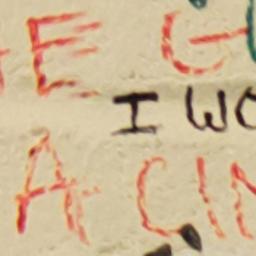 E G
I WO
A CIN